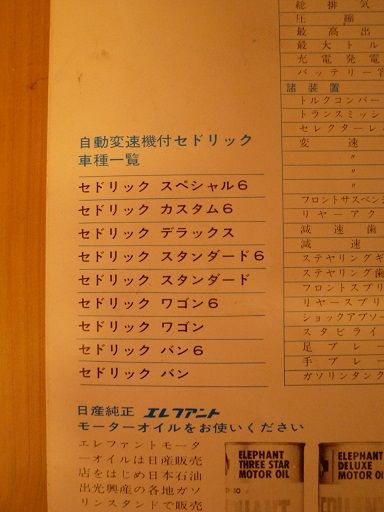 自動変速機付セドリック
車種一覧
セドリック スペシャル6
セドリック カスタム6
セドリック デラックス
セドリック スタンダード6
セドリック スタンダード
セドリック ワゴン6
セドリック ワゴン
セドリック バン6
セドリック バン
日産純正 エレファント
モーターオイルをお使いください
エレファントモータ
ーオイルは日産販売
店をはじめ日本石油
出光興産の各地ガソ
リンスタンドで販売
ELEPHANT
THREE STAR
MOTOR OIL
ELEPHANT
DELUXE
MOTOR OIL
総排気
圧縮
最高出
最大トル
充電発電
バッテリー
諸装置
トルクコンバー
トランスミッシ
セレクターレ
変速
〃
〃
〃
フロントサスペン
リヤーアク
減速歯
減速
ステヤリングギ
ステヤリング歯
フロントスプリ
リヤースプリ
ショックアブソー
スタビライ
足ブレー
手ブレー
ガソリンタンク